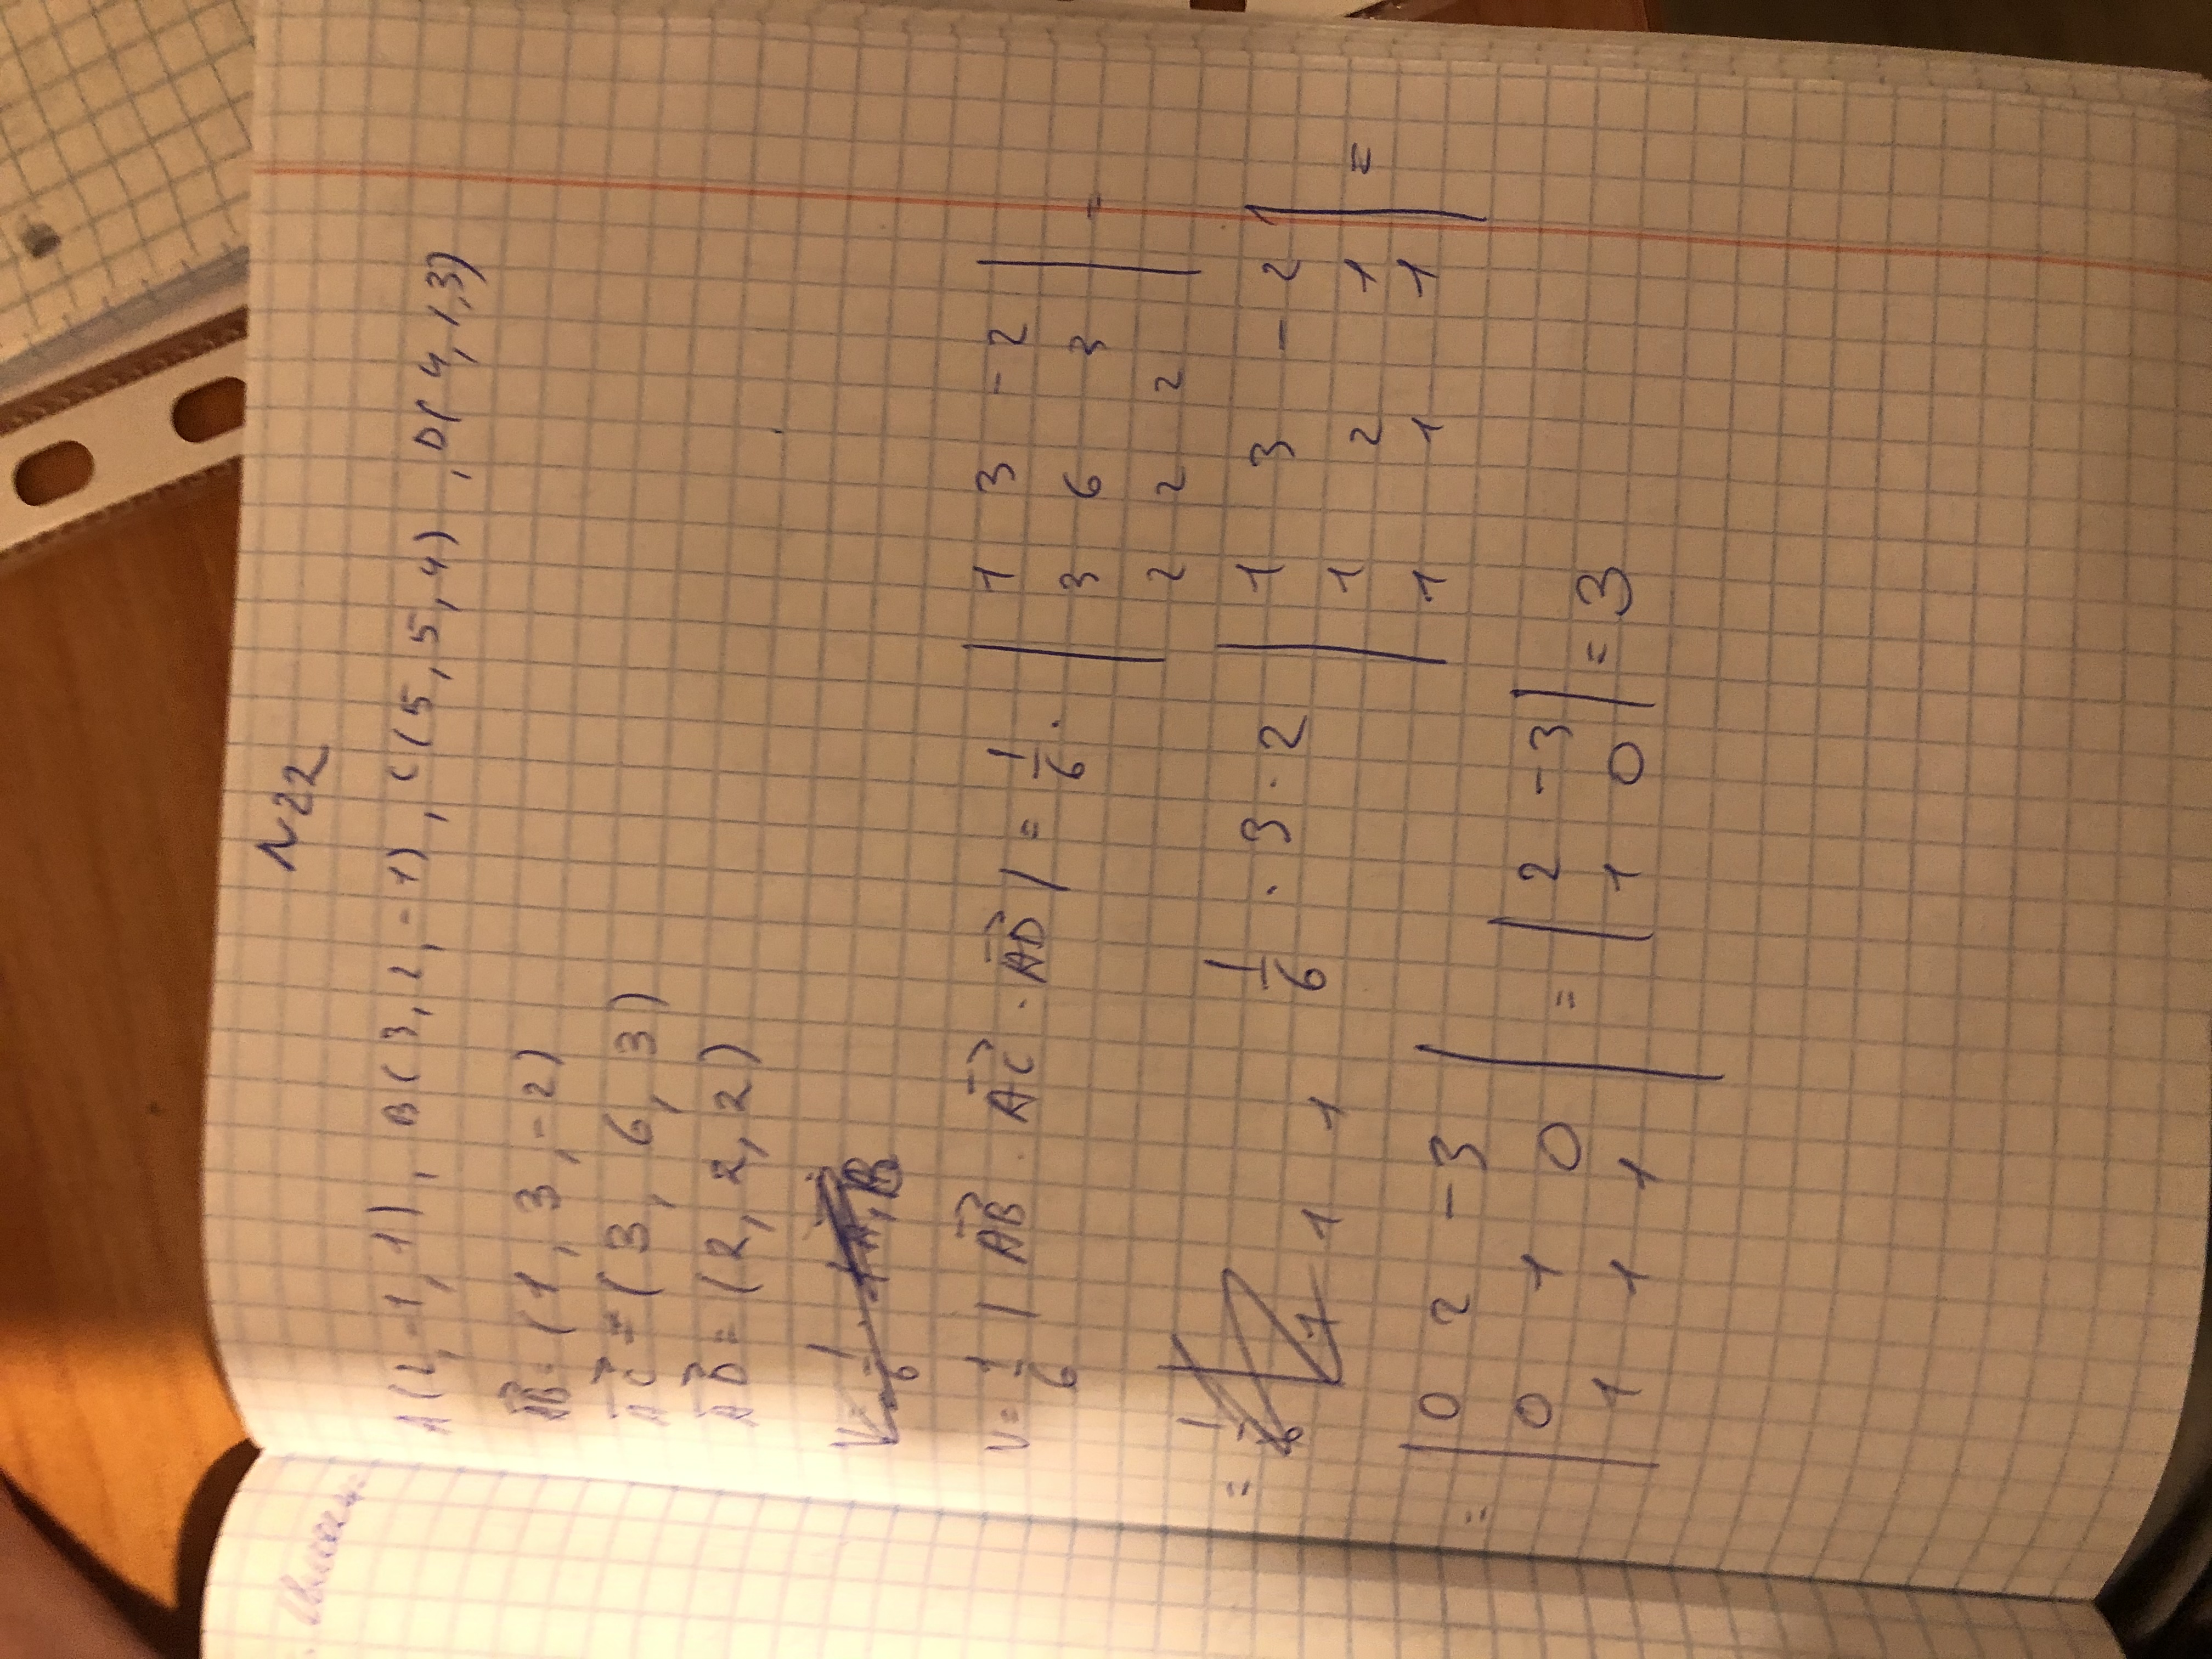 N22
A(2,-1,1), B(3,2,-1), C(5,5,4), D(4,1,3)
AB = (1, 3, -2)
AC = (3, 6, 3)
AD = (2, 2, 2)
V = 1/6 | AB · AC · AD | = 1/6 · | 1 3 -2 |
| 3 6 3 | =
| 2 2 2 |
= 1/6 · 3 · 2 | 1 3 -2 |
| 1 2 1 | =
1 1 1 | 1 1 1 |
= | 0 2 -3 |
| 0 1 0 | = | 2 -3 | = 3
| 1 1 1 | | 1 0 |